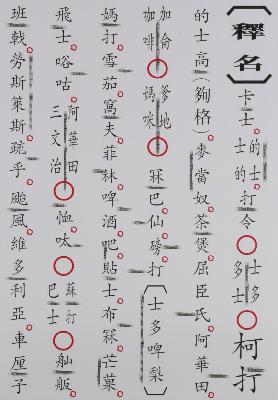 〔釋名〕卡士的士士的打令士多多士柯打
的士高(夠格)麥當奴茶煲屈臣氏阿華田
加侖咖啡爹地媽咪冧巴仙磅打〔士多啤梨〕
媽打雪茄窩夫菲林啤酒吧貼士布冧芒菓
飛士唂咕阿華田三文治恤呔蘇打巴士舢舨
班戟勞斯萊斯疏乎颱風維多利亞車厘子